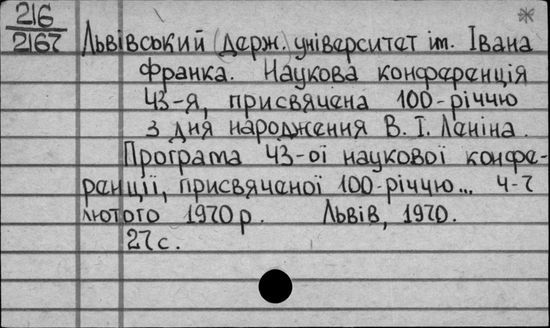 216
2167
*
Львівський (держ.) університет ім. Івана
Франка. Наукова конференція
43-я, присвячена 100-річчю
з дня народження В. І. Леніна.
Програма 43-ої наукової конфе-
ренції, присвяченої 100-річчю... 4-7
лютого 1970 р. Львів, 1970.
27 с.